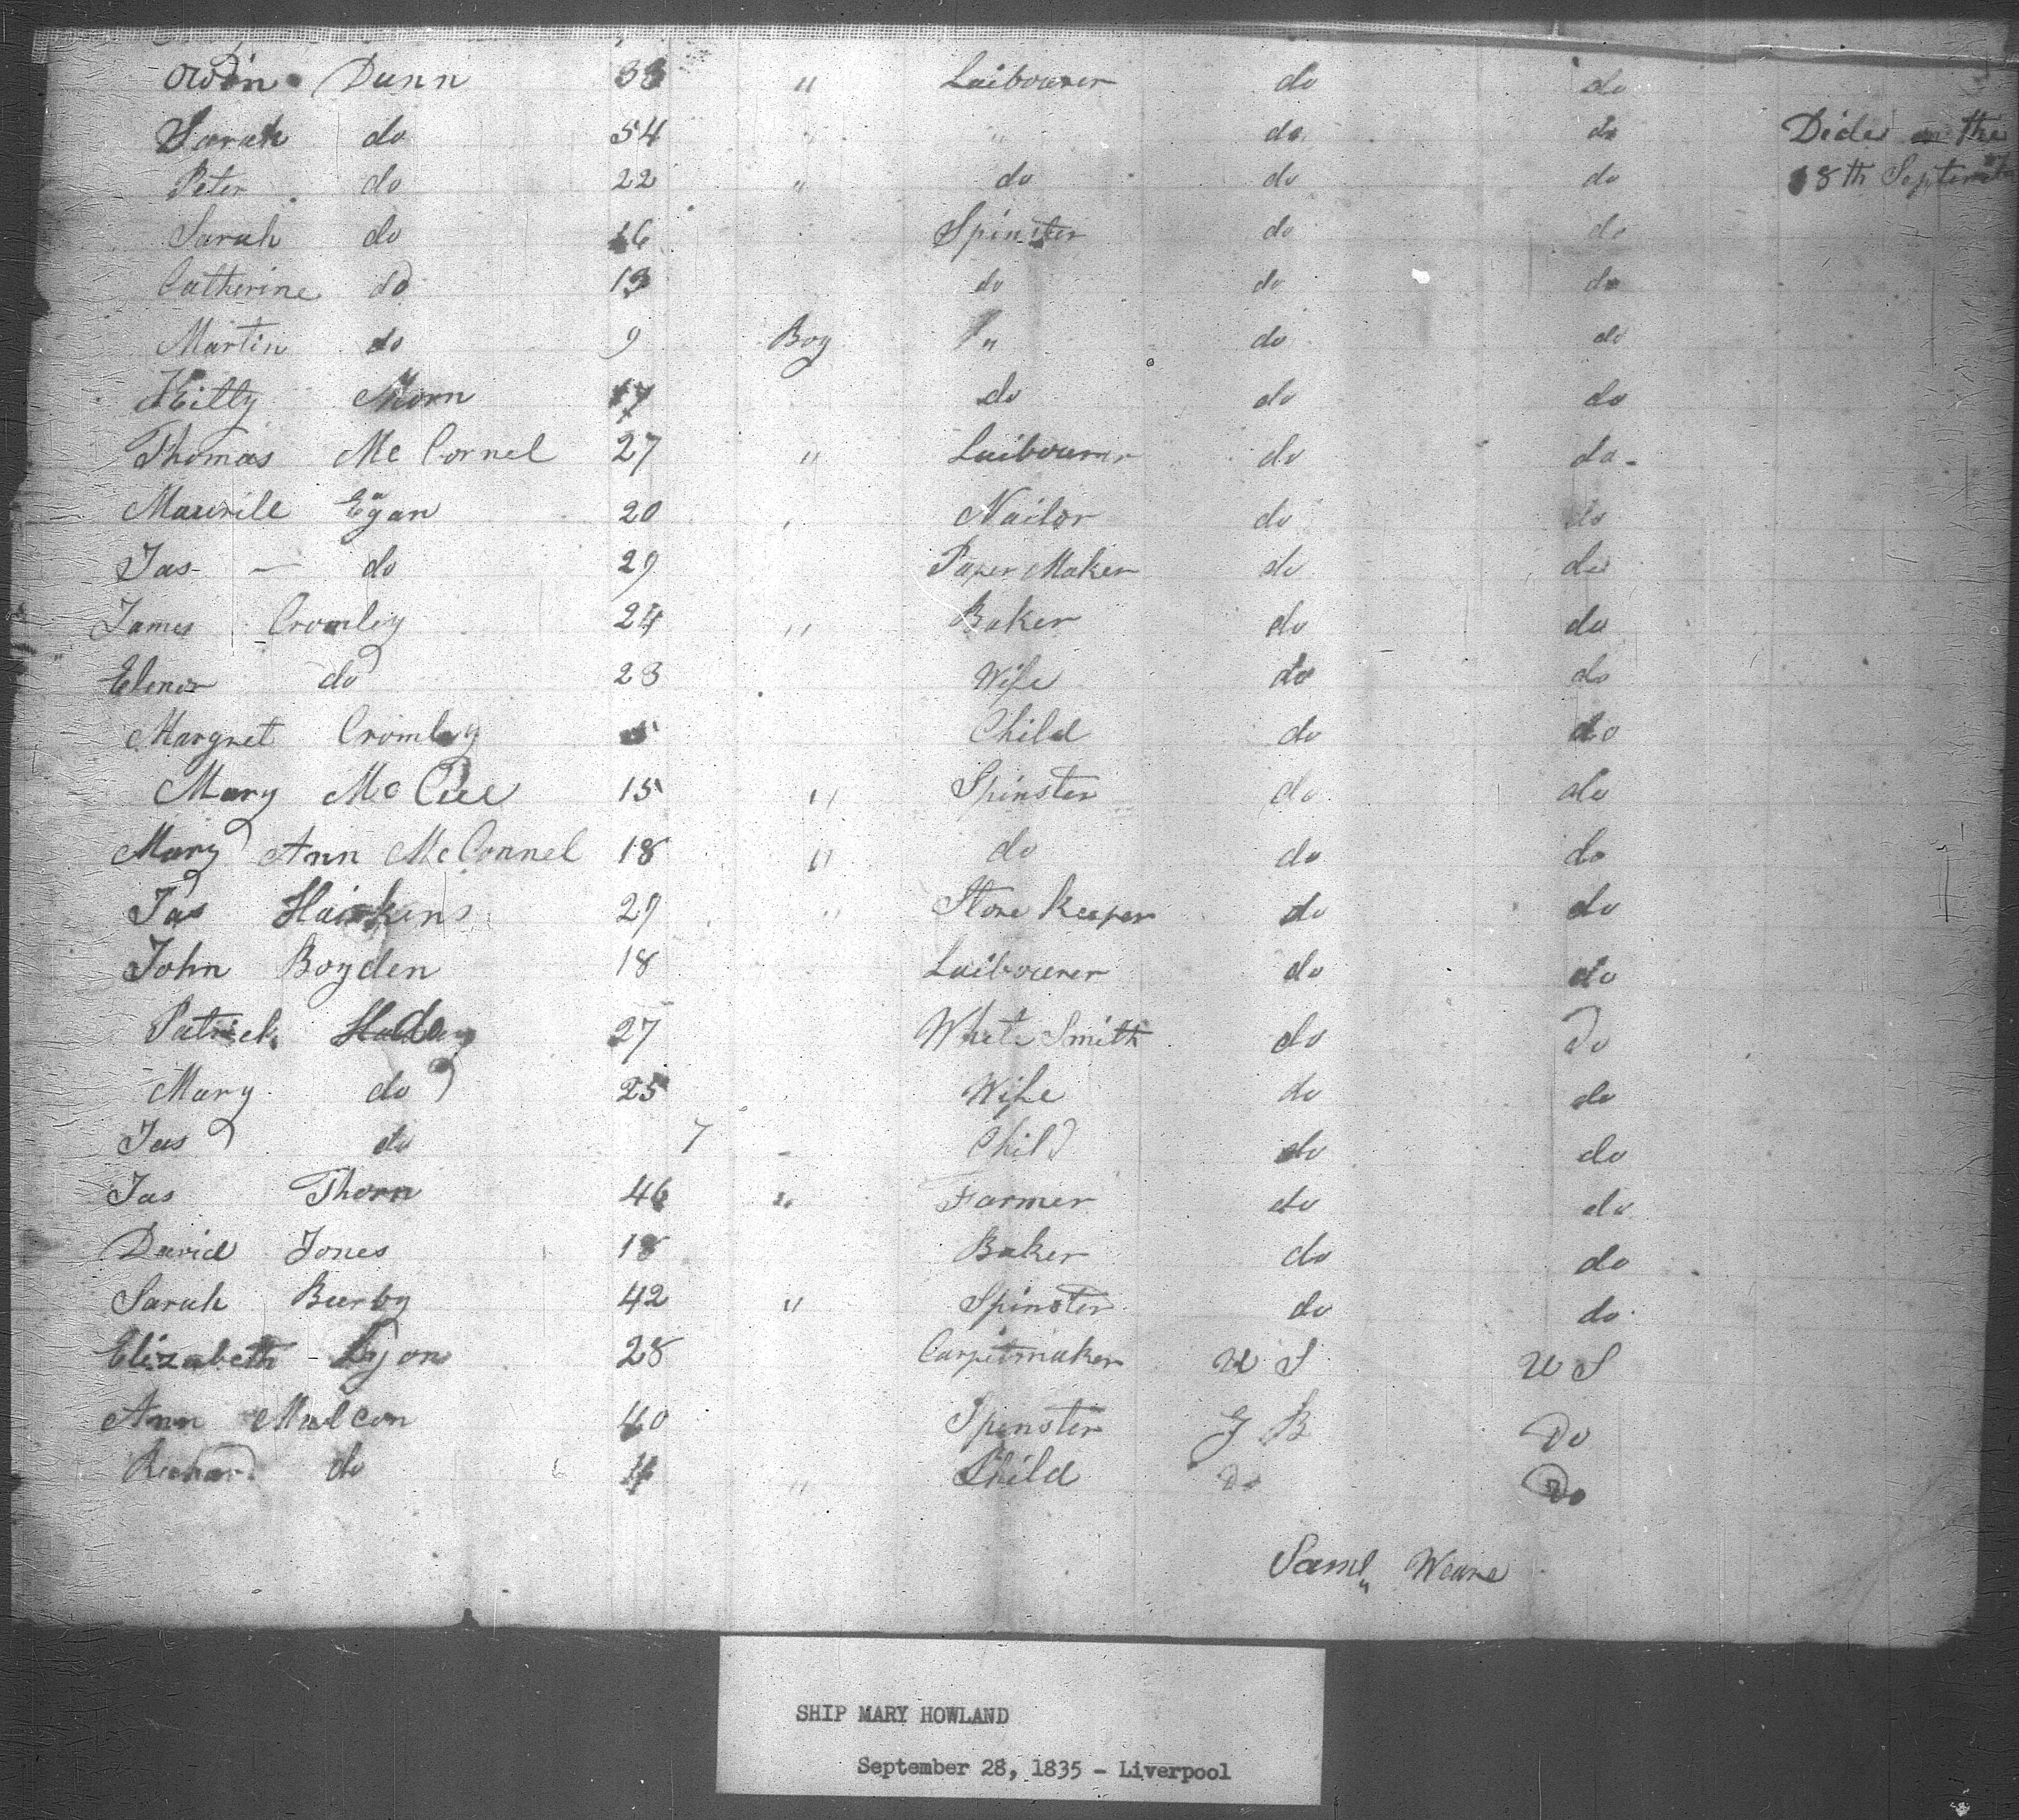 Owen Dunn 33 " Laibourer do do
Sarah do 54 " " do do Dide on the
Peter do 22 " do do do 18th September
Sarah do 16 Spinster do do
Catherine do 13 do do do
Martin do 9 Boy " do do
Kitty Morn 17 do do do
Thomas Mc Cornel 27 " Laibourer do do
Egan 20 " Nailor do do
Jas - do 29 Paper Maker do do
James Cromley 24 " Baker do do
Elenor do 23 Wife do do
Margret Cromley 5 Child do do
Mary Mc Cue 15 " Spinster do do
Mary Ann McConnel 18 " do do do
Jas Hawkins 29 " Store keeper do do
John Boyden 18 Laibourer do do
Patrick 27 White Smith do Do
Mary do 25 Wife do do
Jas do 7 Child do do
Jas Thorn 46 " Farmer do do
David Jones 18 Baker do do
Sarah Burby 42 " Spinster do do
Elizabeth Lyon 28 Carpetmaker U S U S
Ann 40 Spenster G B Do
Richard do 4 " Child Do Do
Saml Weare
SHIP MARY HOWLAND
September 28, 1835 - Liverpool